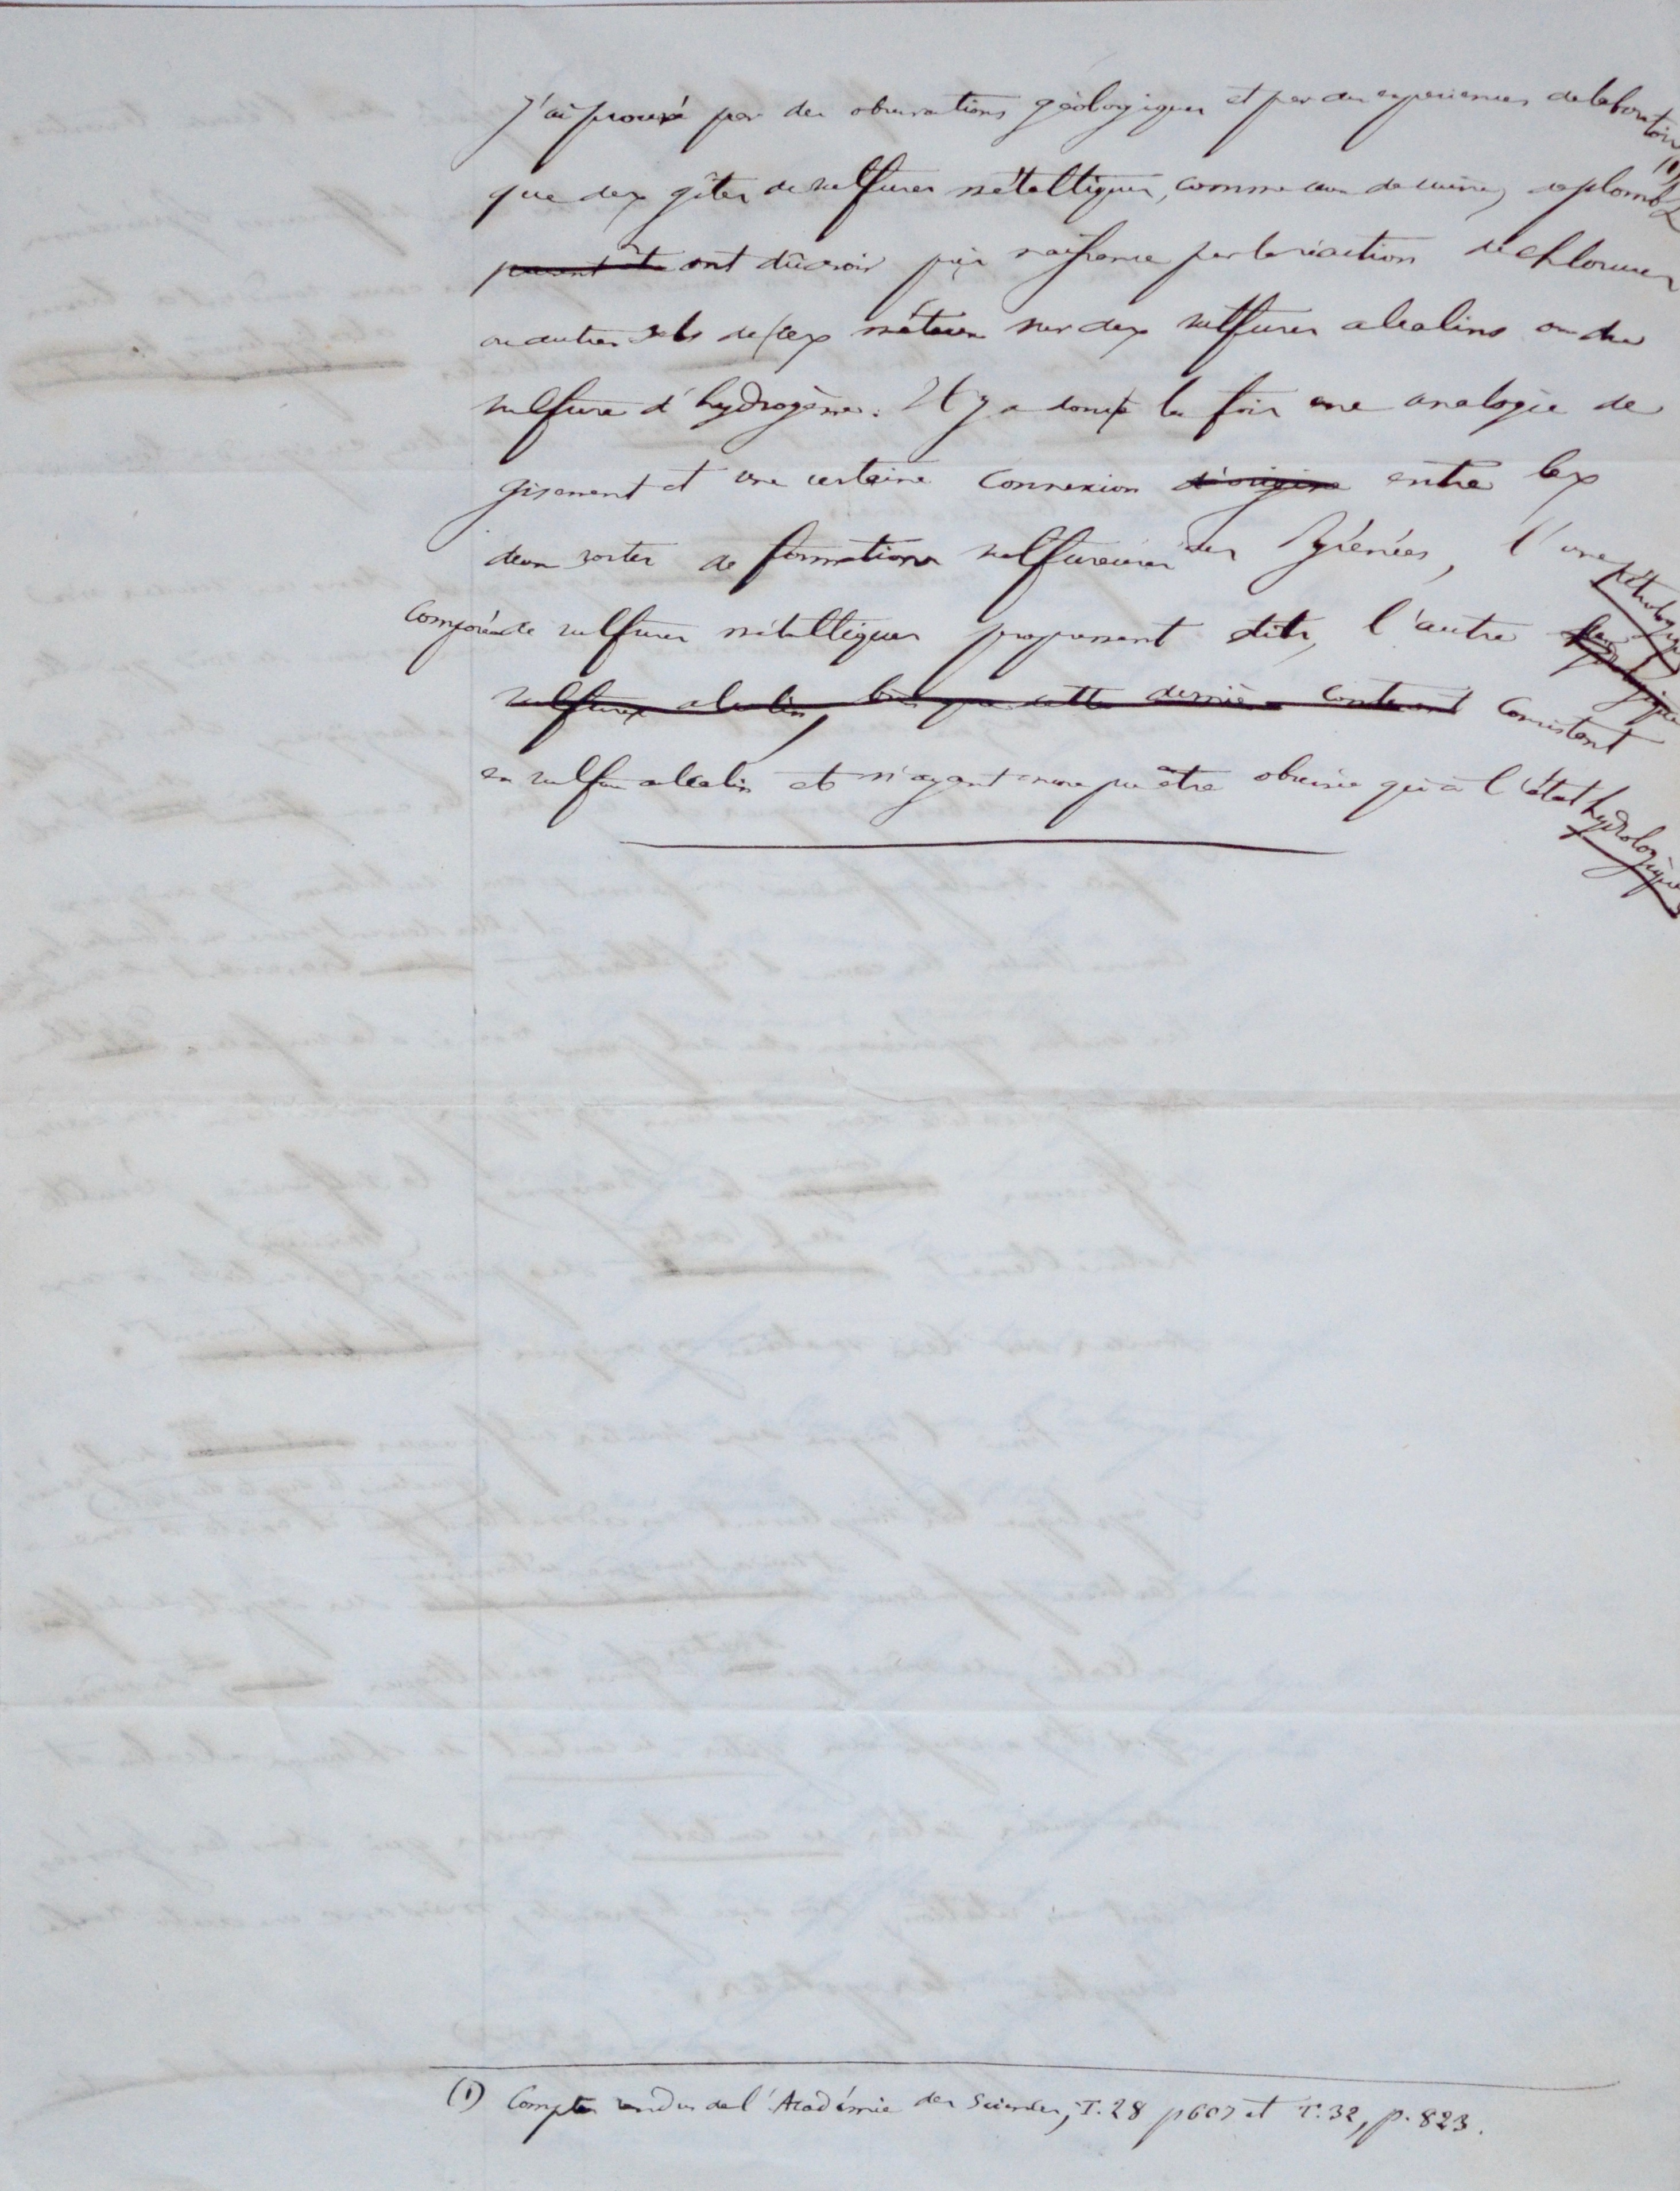 J'ai prouvé par des observations géologiques et par des expériences de laboratoire (1)
que des gîtes de sulfures métalliques, comme ceux de cuivre, de plomb &
ont dû avoir pris naissance par la réaction de chlorures
ou autres sels de ces métaux sur des sulfures alcalins ou du
sulfure d'hydrogène. Il y a donc à la fois une analogie de
gisement et une certaine connexion d'origine entre les
deux sortes de formations sulfureuses des Pyrénées, l'une pétrologique
composée de sulfures métalliques proprement dits, l'autre
sulfure alcalin, bien que cette dernière contenant Consistant
en sulfure alcalin et n'ayant encore pu être observée qu'à l'état hydrologique
(1) Comptes rendus de l'Académie des Sciences, T. 28 p 607 et T. 32, p. 823.